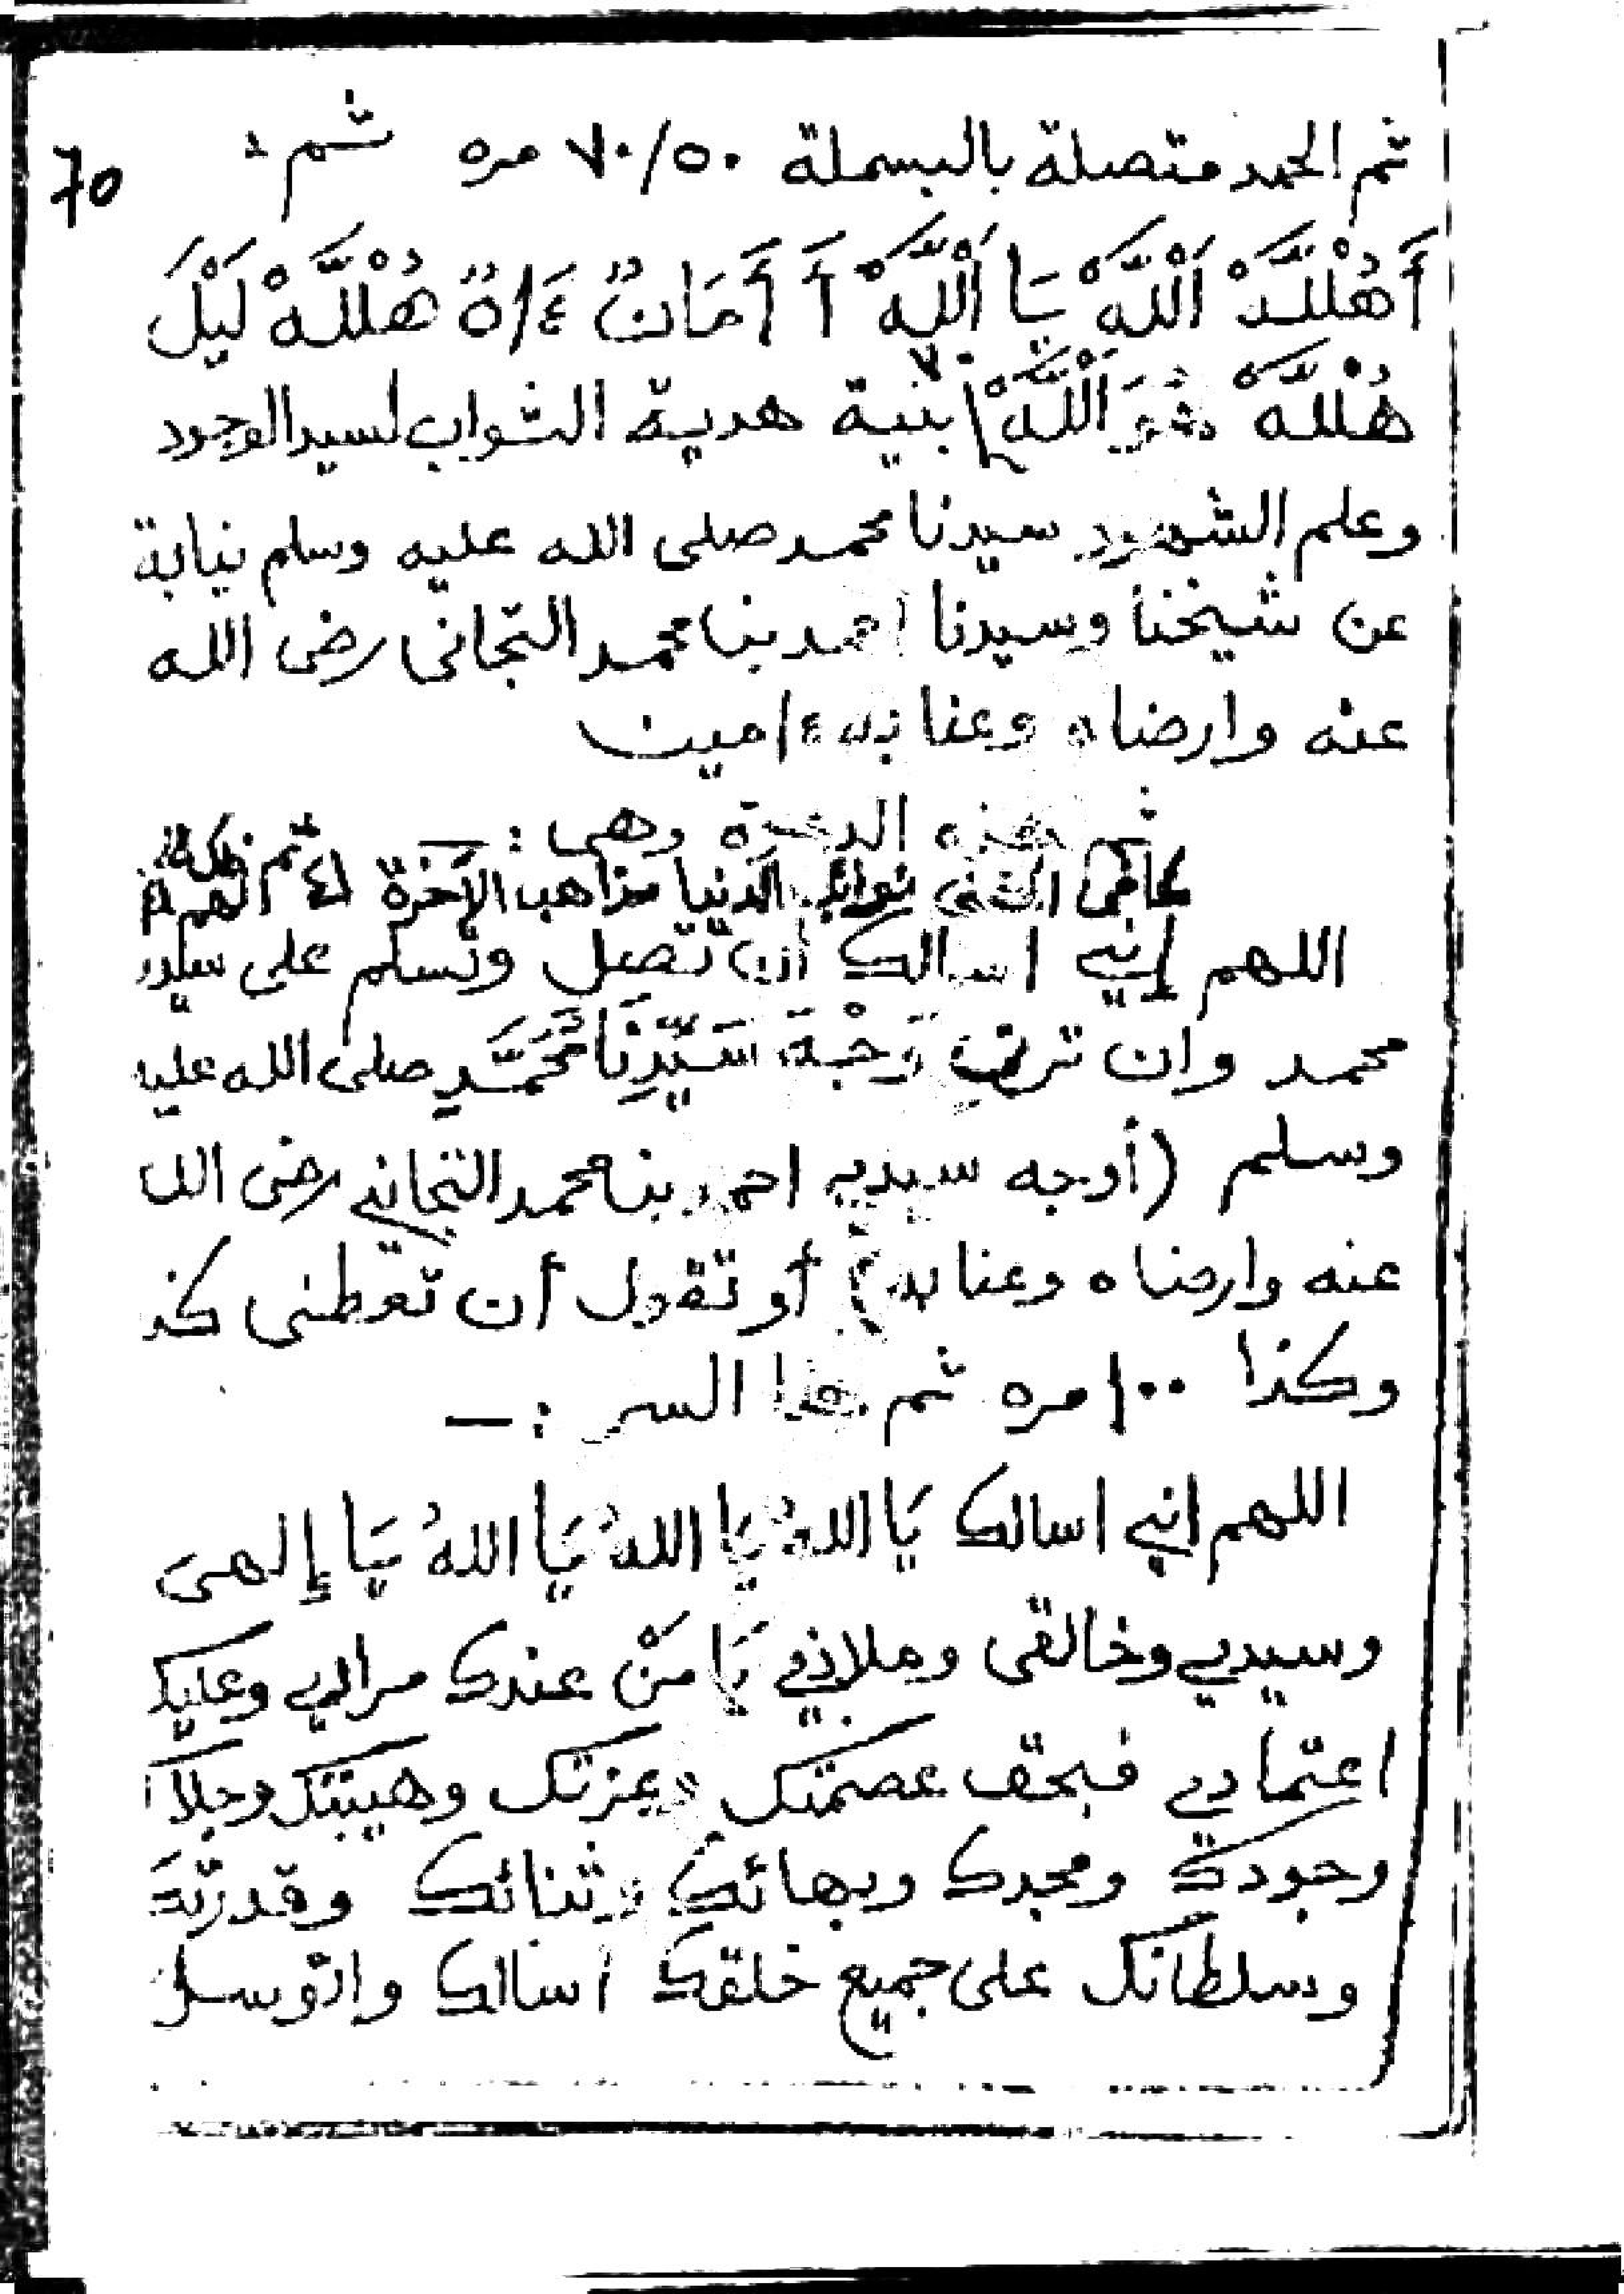 70
ثم الحمد متصلة بالبسملة ٧٠/٥٠ مره ثم :
أَهُلْلَّهْ اَلْلَّهْ يَا اَلْلَّهْ أَ أَمَانٌ ءَاهٌ هُلْلَّهْ لَيْلَ
هُلْلَّهْ اَلْلَّهْ ٧٠ بنية هدية الثواب لسيد الوجود
وعلم الشهود سيدنا محمد صلى الله عليه وسلم نيابة
عن شيخنا وسيدنا احمد بن محمد التجانى رضى الله
عنه وارضاه وعنا به ءامين
ثم هذه الدعوة وهى : ــ
الدنيا مذاهب الآخرة ثم
اللهم إني اسالك أن تصل وتسلم على سيدنا
محمد وان ترنى وَجْهَ سَيِّدِنَا مُحَمَّدٍ صلى الله عليه
وسلم (أوجه سيدي احمد بن محمد التجاني رضى الله
عنه وارضاه وعنا به) أو تقول أن تعطنى كذ
وكذا ١٠٠ مره ثم هذا السر : ــ
اللهم اني اسالك يَا اللهُ يَا اللهُ يَا اللهُ يَا إِلهى
وسيدي وخالقى وملاذي يَا مَنْ عندك مرادي وعليك
اعتمادي فبحق عصمتك وعزتك وهيبتك وجلا
وجودك ومجدك وبهائك وثنائك وقدرتك
وسلطانك على جميع خلقك اسالك واتوسل